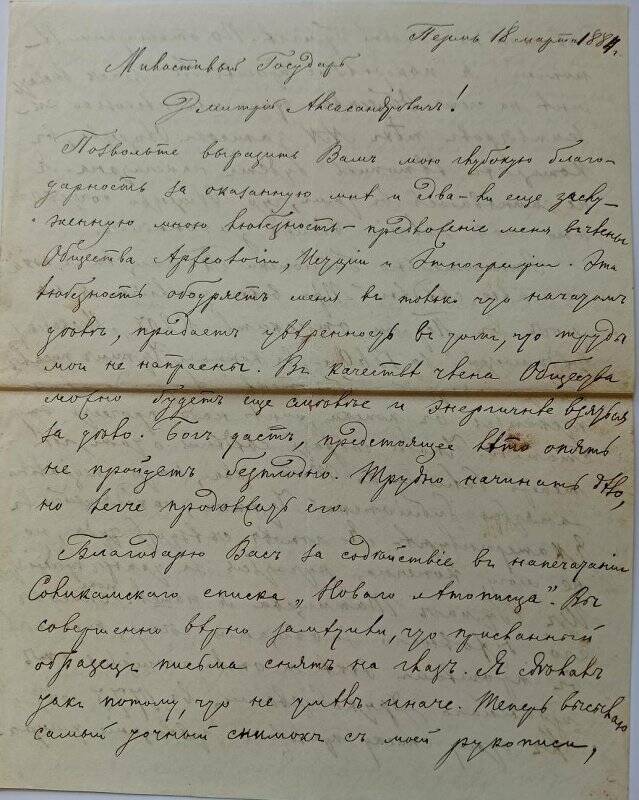 Пермь 18 марта 1884 г.
Милостивый Государь
Дмитрій Александровичъ!
Позвольте выразить Вамъ мою глубокую благо-
дарность за оказанную мнѣ и едва-ли еще заслу-
женную мною любезность – предложеніе меня въ члены
Общества Археологіи, Исторіи и Этнографіи. Эта
любезность ободряетъ меня въ только что начатомъ
дѣлѣ, придаетъ увѣренность въ томъ, что труды
мои не напрасны. Въ качествѣ члена Общества
можно будетъ еще смѣлѣе и энергичнѣе взяться
за дѣло. Богъ дастъ, предстоящее лѣто опять
не пройдетъ безплодно. Трудно начинать дѣло,
но легче продолжать его.
Благодарю Васъ за содѣйствіе въ напечатаніи
Соликамскаго списка „Новаго лѣтописца". Вы
совершенно вѣрно замѣтили, что присланный
образецъ письма снятъ на глазъ. Я сдѣлалъ
такъ потому, что не умѣлъ иначе. Теперь высылаю
самый точный снимокъ съ моей рукописи,